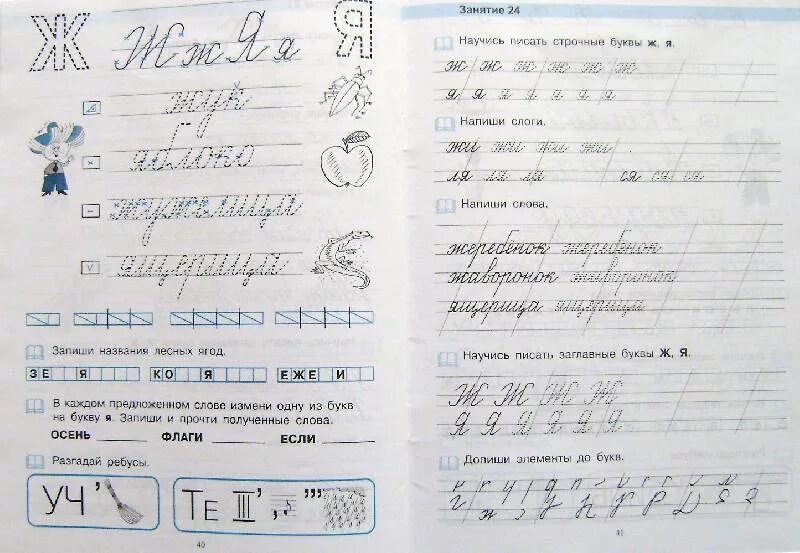 Ж Ж ж Я я Я
жук
яблоко
жужелица
ящерица
Запиши названия лесных ягод.
ЗЕ Я КО Я ЕЖЕ И
В каждом предложенном слове измени одну из букв
на букву я. Запиши и прочти полученные слова.
ОСЕНЬ ФЛАГИ ЕСЛИ
Разгадай ребусы.
УЧ ’ ТЕ III’ , ’’’
40
Занятие 24
Научись писать строчные буквы ж, я.
ж ж ж ж ж ж
я я я я я я я
Напиши слоги.
жи жи жи жи
ля ля ля ся ся ся
Напиши слова.
жеребёнок жеребёнок
жаворонок жаворонок
ящерица ящерица
Научись писать заглавные буквы Ж, Я.
Ж Ж Ж Ж
Я Я Я Я Я Я
Допиши элементы до букв.
41